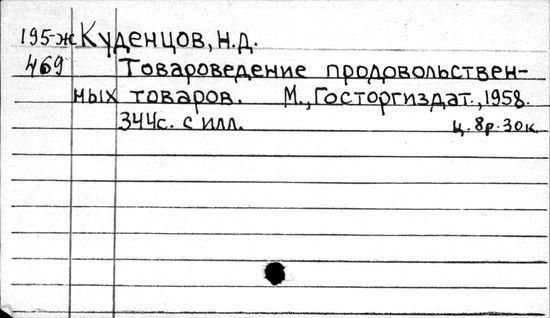 195-ж Куденцов, н.д.
469 Товароведение продовольствен-
ных товаров. М., Госторгиздат., 1958.
344с. с илл. ц. 8р. 30к.